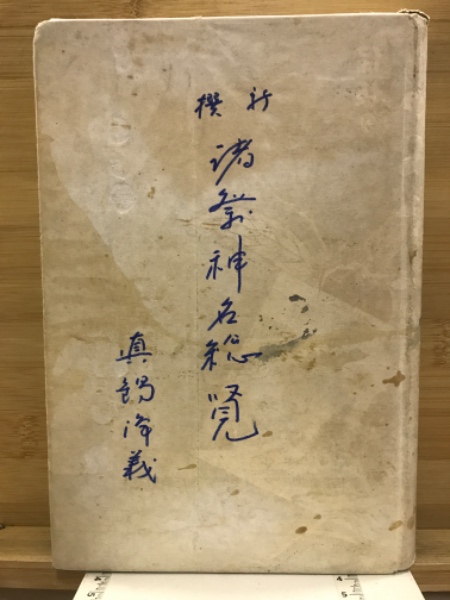 新撰
諸祭神名総覧
真鍋浄義